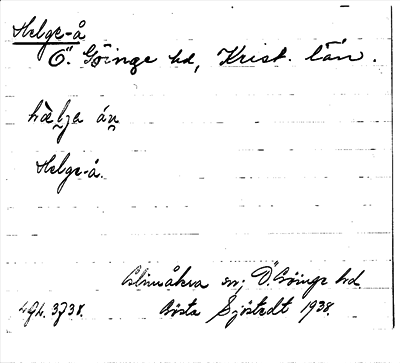 Helge-å
Ö. Göinge hd, Krist. län.
hælja án
Helge-å.
Glimåkra sn; Ö. Göinge hd.
Gösta Sjöstedt 1938.